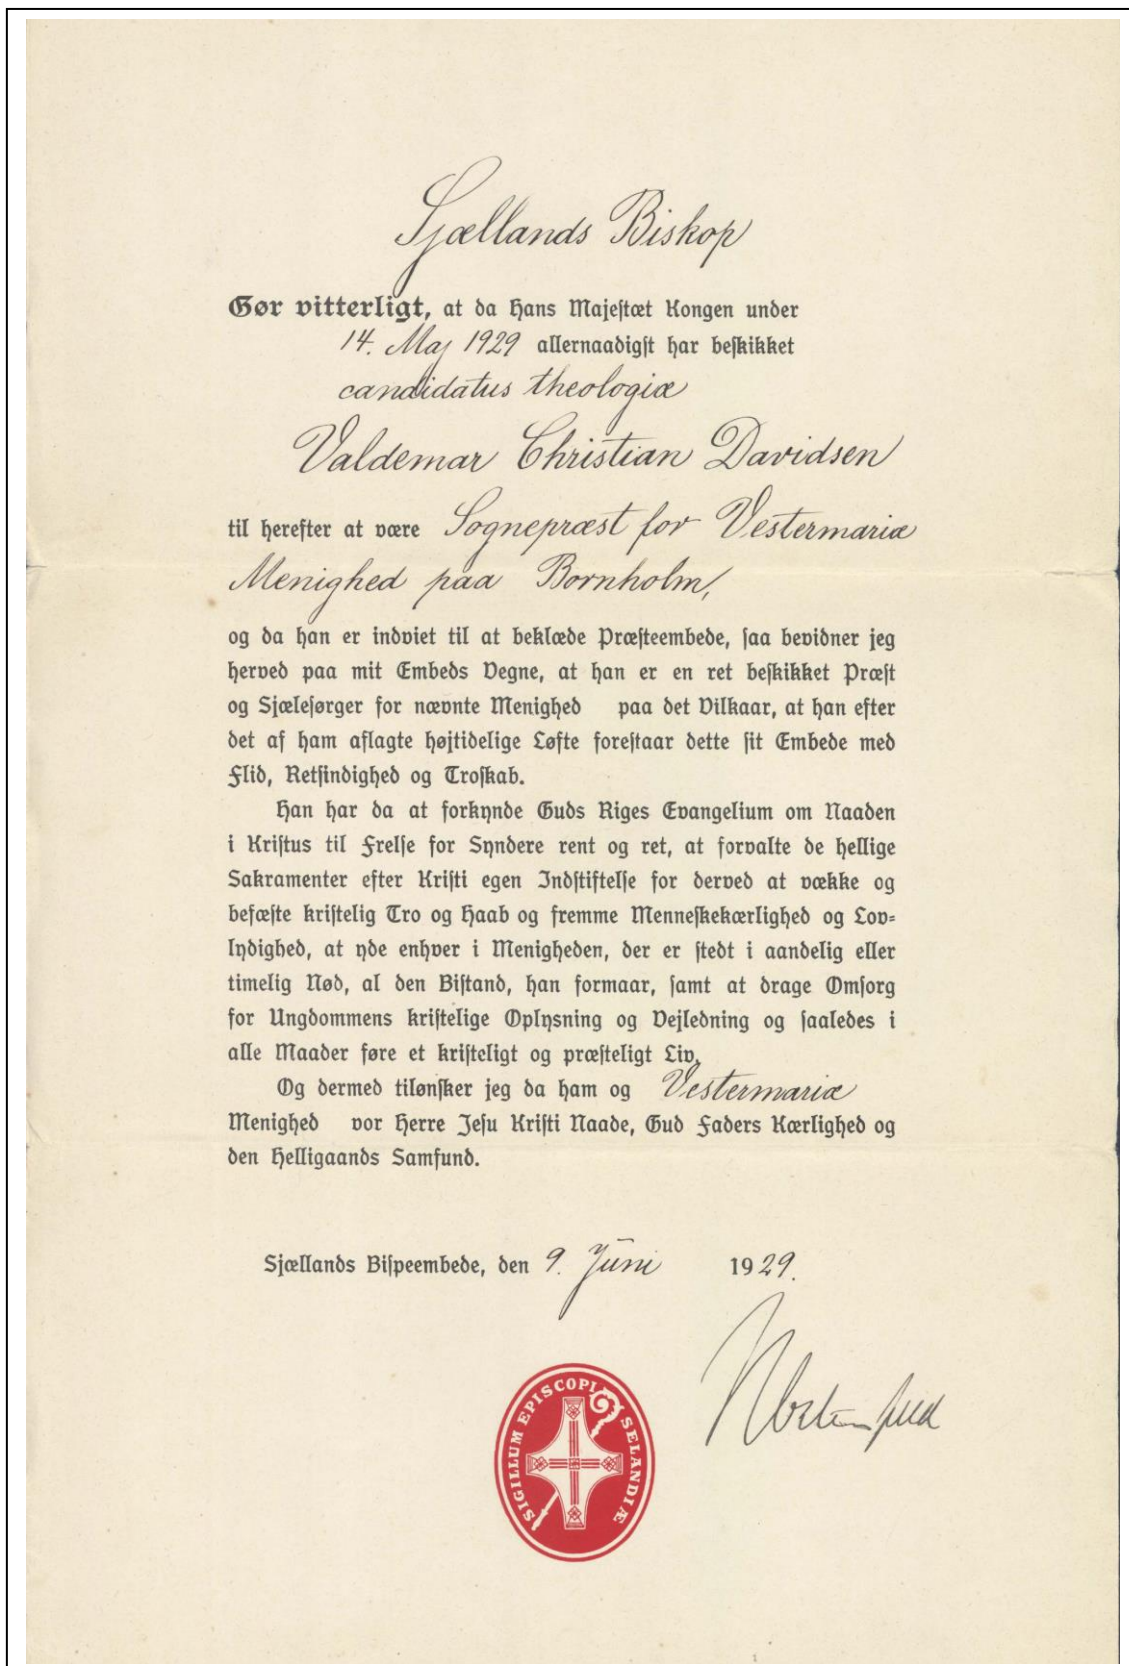 Sjællands Biskop
Gør vitterligt, at da Hans Majestæt Kongen under
14. Maj 1929 allernaadigst har beskikket
candidatus theologiæ
Valdemar Christian Davidsen
til herefter at være Sognepræst for Vestermariæ
Menighed paa Bornholm,
og da han er indviet til at beklæde Præsteembede, saa bevidner jeg
herved paa mit Embeds Vegne, at han er en ret beskikket Præst
og Sjælesørger for nævnte Menighed paa det Vilkaar, at han efter
det af ham aflagte højtidelige Løfte forestaar dette sit Embede med
Flid, Retsindighed og Troskab.
Han har da at forkynde Guds Riges Evangelium om Naaden
i Kristus til Frelse for Syndere rent og ret, at forvalte de hellige
Sakramenter efter Kristi egen Indstiftelse for derved at vække og
befæste kristelig Tro og Haab og fremme Menneskekærlighed og Lov-
lydighed, at yde enhver i Menigheden, der er stedt i aandelig eller
timelig Nød, al den Bistand, han formaar, samt at drage Omsorg
for Ungdommens kristelige Oplysning og Vejledning og saaledes i
alle Maader føre et kristeligt og præsteligt Liv.
Og dermed tilønsker jeg da ham og Vestermariæ
Menighed vor Herre Jesu Kristi Naade, Gud Faders Kærlighed og
den Helligaands Samfund.
Sjællands Bispeembede, den 9. Juni 1929.
SIGILLUM EPISCOPI SELANDIÆ